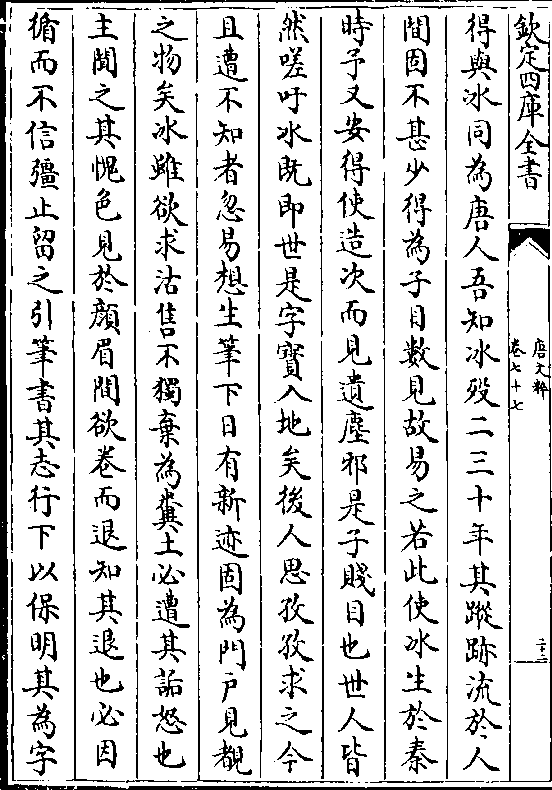 欽定四庫全書
唐文粹
卷七十七
二十二
得與冰同為唐人吾知冰殁二三十年其蹤跡流於人
間固不甚少得為子目數見故易之若此使冰生於秦
時予又安得使造次而見遺塵邪是子賤目也世人皆
然嗟吁冰既即世是字寶入地矣後人思孜孜求之今
且遭不知者忽易想生筆下日有新迹固為門戸見覩
之物矣冰雖欲求沽售不獨棄為糞土必遭其詬怒也
主聞之其愧色見於顔眉間欲卷而退知其退也必因
循而不信彊止留之引筆書其志行下以保明其為字